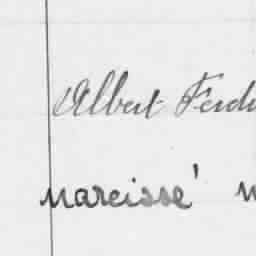 Albert Ferd
Narcisse' n